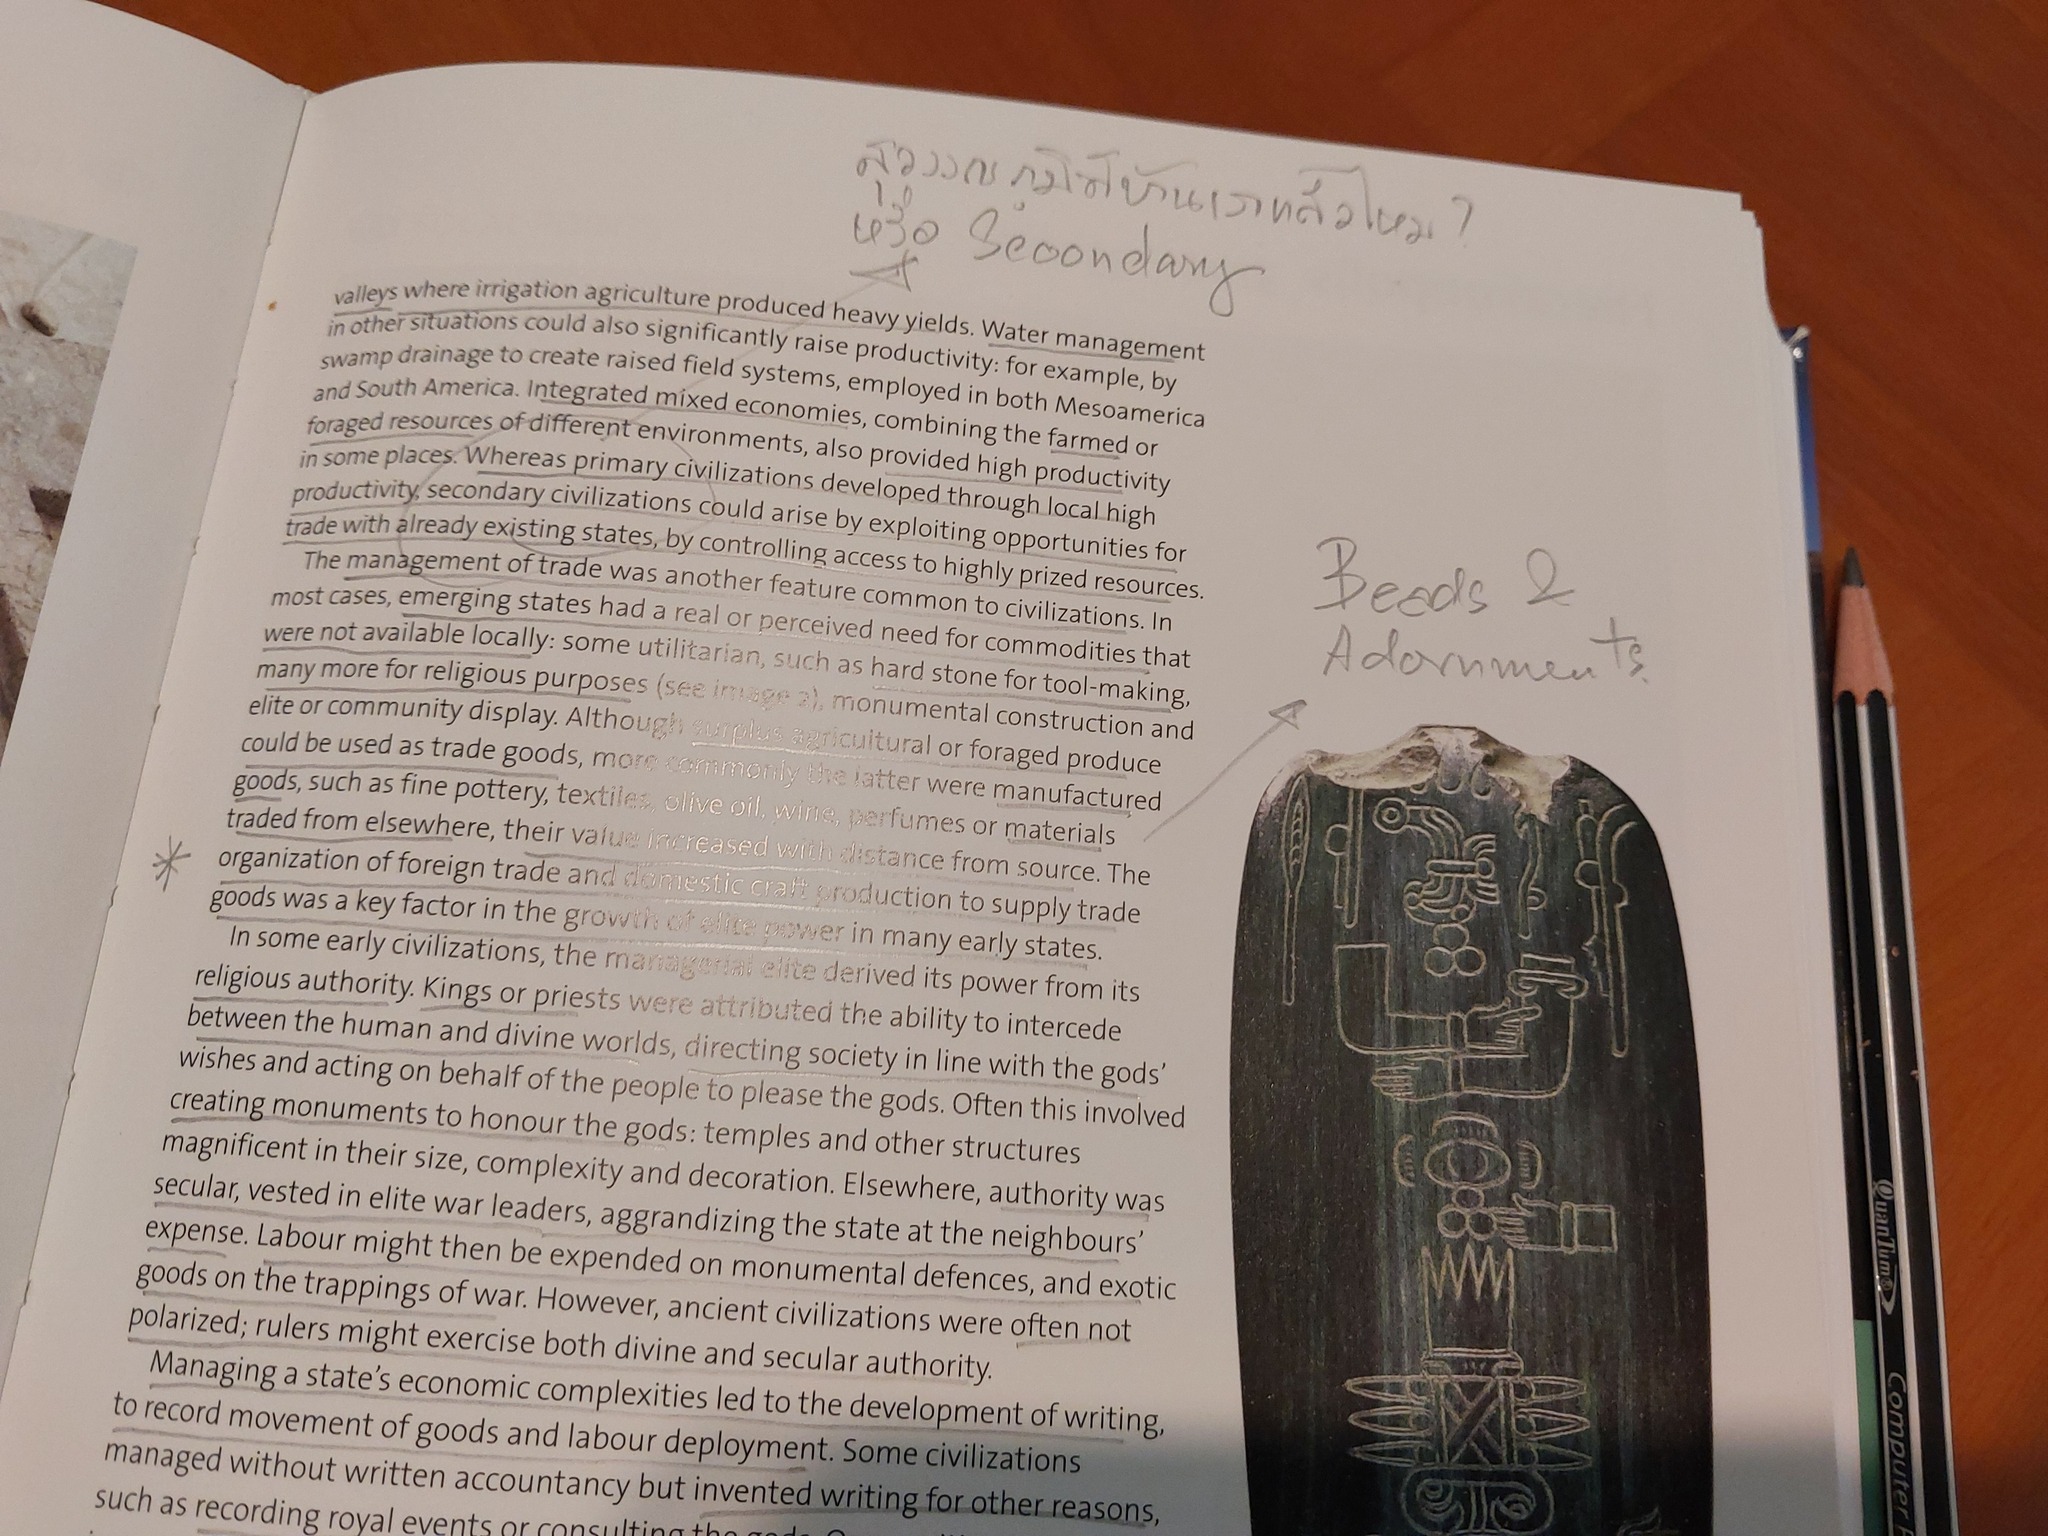 สุวรรณภูมิที่บ้านเราหล่ะไหม?
หรือ Secondary
valleys where irrigation agriculture produced heavy yields. Water management
in other situations could also significantly raise productivity: for example, by
swamp drainage to create raised field systems, employed in both Mesoamerica
and South America. Integrated mixed economies, combining the farmed or
foraged resources of different environments, also provided high productivity
in some places. Whereas primary civilizations developed through local high
productivity, secondary civilizations could arise by exploiting opportunities for
trade with already existing states, by controlling access to highly prized resources.
The management of trade was another feature common to civilizations. In
most cases, emerging states had a real or perceived need for commodities that
were not available locally: some utilitarian, such as hard stone for tool-making,
many more for religious purposes (see image 2), monumental construction and
elite or community display. Although surplus agricultural or foraged produce
could be used as trade goods, more commonly the latter were manufactured
goods, such as fine pottery, textiles, olive oil, wine, perfumes or materials
traded from elsewhere, their value increased with distance from source. The
organization of foreign trade and domestic craft production to supply trade
goods was a key factor in the growth of elite power in many early states.
In some early civilizations, the managerial elite derived its power from its
religious authority. Kings or priests were attributed the ability to intercede
between the human and divine worlds, directing society in line with the gods'
wishes and acting on behalf of the people to please the gods. Often this involved
creating monuments to honour the gods: temples and other structures
magnificent in their size, complexity and decoration. Elsewhere, authority was
secular, vested in elite war leaders, aggrandizing the state at the neighbours'
expense. Labour might then be expended on monumental defences, and exotic
goods on the trappings of war. However, ancient civilizations were often not
polarized; rulers might exercise both divine and secular authority.
Managing a state's economic complexities led to the development of writing,
to record movement of goods and labour deployment. Some civilizations
managed without written accountancy but invented writing for other reasons,
such as recording royal events or consulting the gods.
Beads &
Adornments
QuanTum
Computer